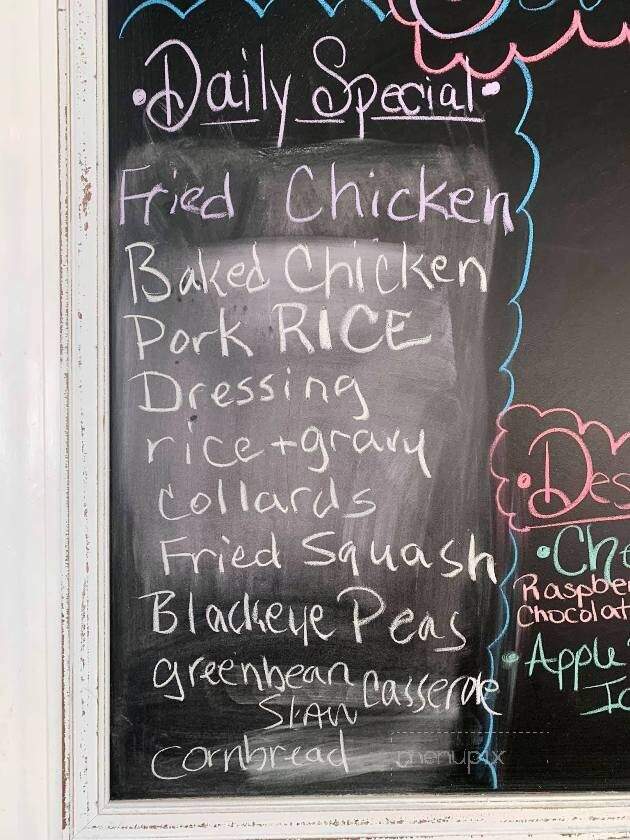 •Daily Special•
Fried Chicken
Baked Chicken
Pork RICE
Dressing
rice+gravy
Collards
Fried Squash
Blackeye Peas
greenbean casserole
Slaw
cornbread
menupix
•Des
•Che
Raspber
Chocolat
•Apple
Ic